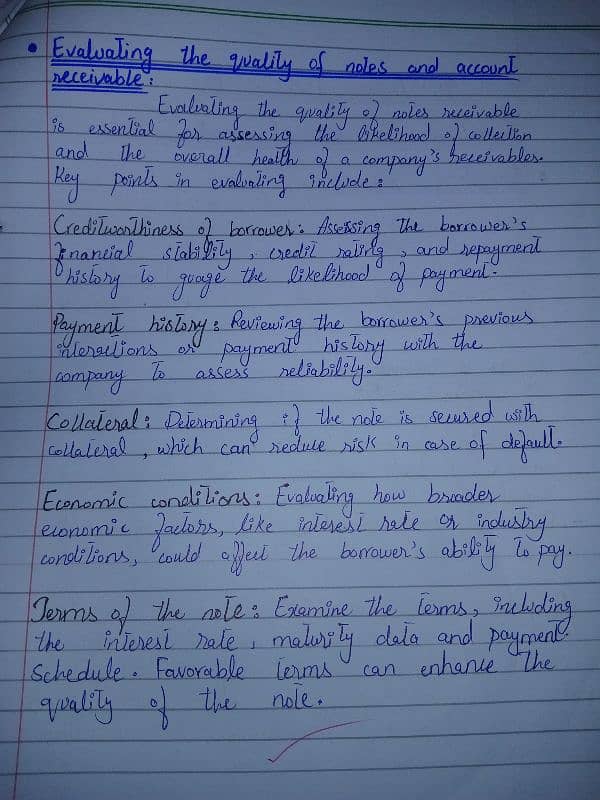 • Evaluating the quality of notes and account
receivable:
Evaluating the quality of notes receivable
is essential for assessing the likelihood of collection
and the overall health of a company's receivables.
Key points in evaluating include:
Creditworthiness of borrower: Assessing the borrower's
financial stability, credit rating, and repayment
history to guage the likelihood of payment.
Payment history: Reviewing the borrower's previous
interactions or payment history with the
company to assess reliability.
Collateral: Determining if the note is secured with
collateral, which can reduce risk in case of default.
Economic conditions: Evaluating how broader
economic factors, like interest rate or industry
conditions, could affect the borrower's ability to pay.
Terms of the note: Examine the terms, including
the interest rate, maturity data and payment
Schedule. Favorable terms can enhance the
quality of the note.